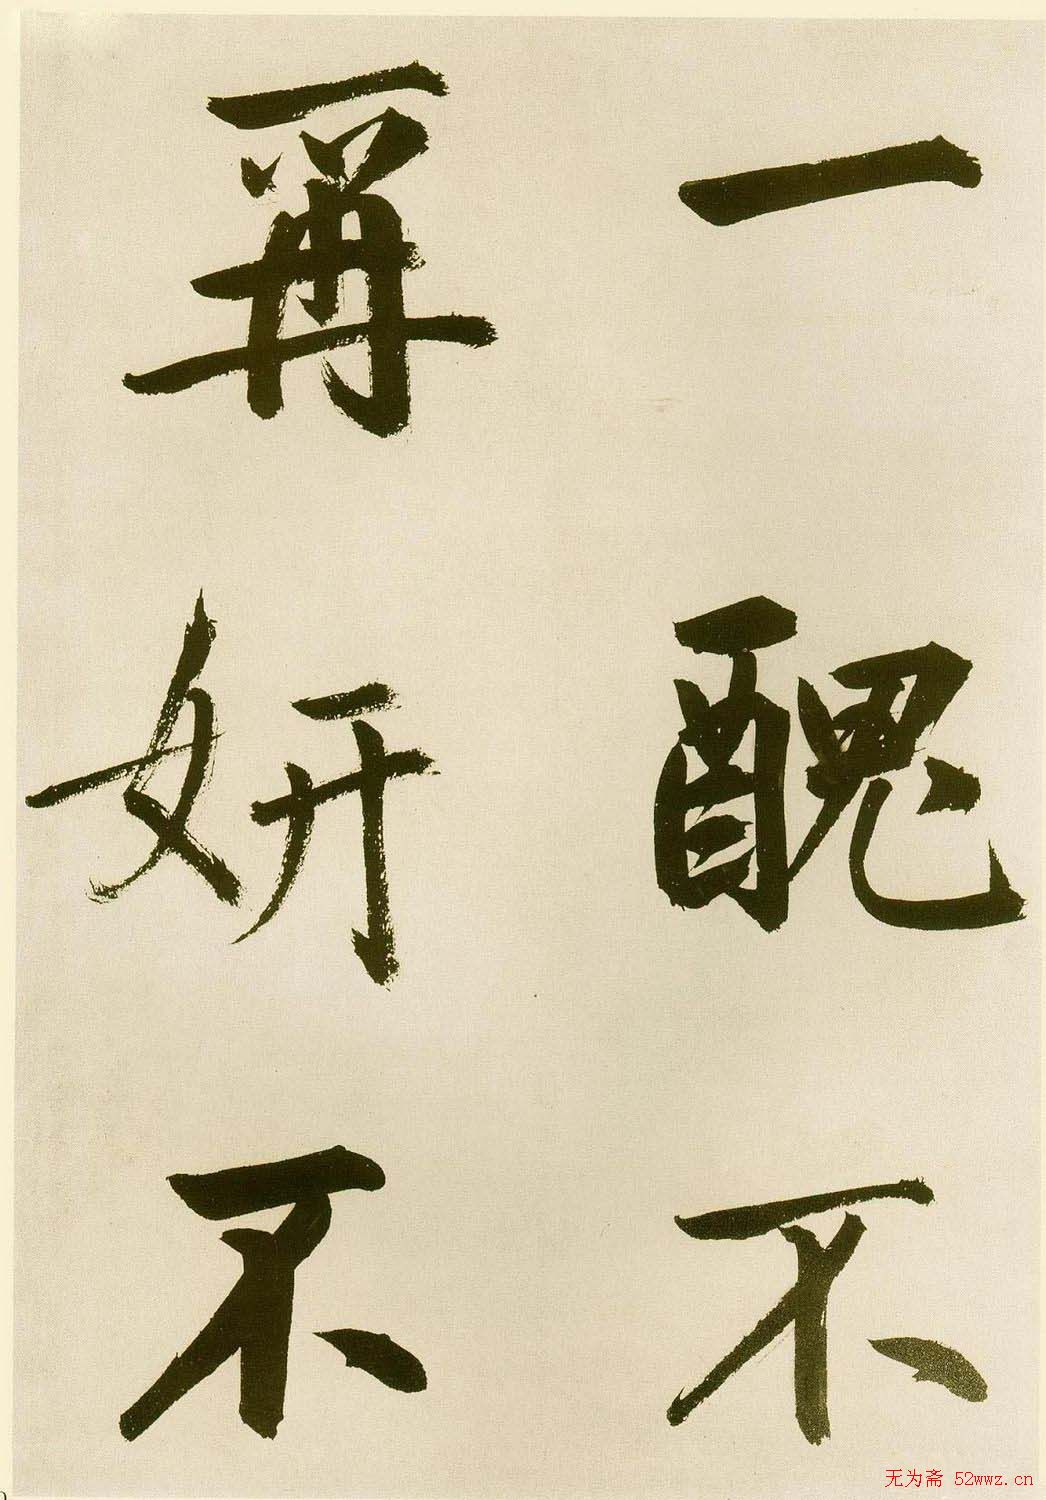 一醜不
再妍不
无为斋 52wwz.cn